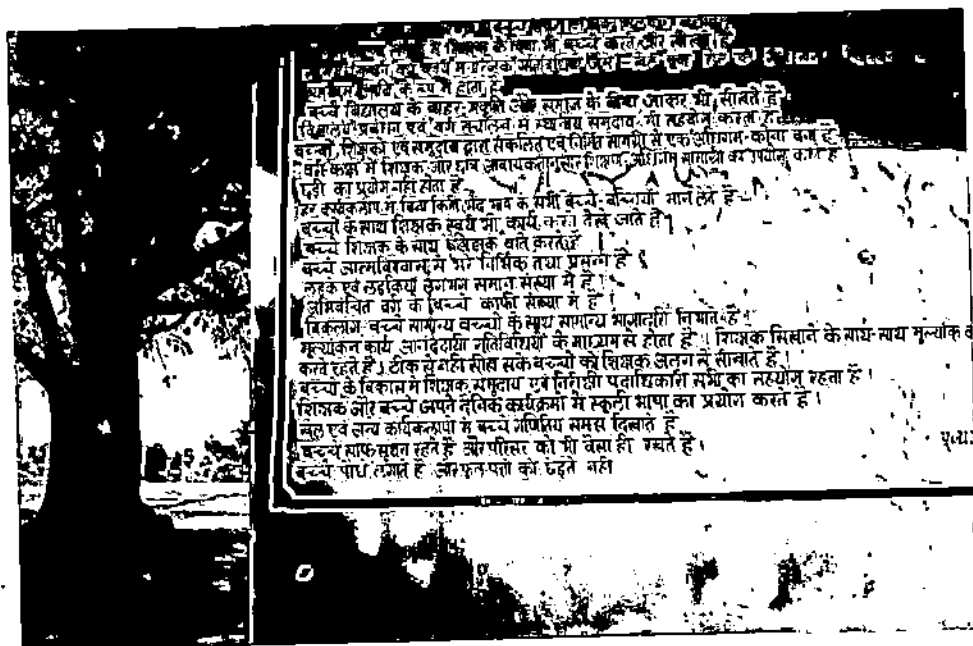 शिक्षक के बिना भी बच्चे करते और सीखते हैं
के रूप में होता है
बच्चे विद्यालय के बाहर प्रकृति और समाज के बीच जाकर भी सीखते हैं
विद्यालय प्रबंधन एवं वर्ग संचालन में स्थानीय समुदाय भी सहयोग करता है
बच्चों, शिक्षकों एवं समुदाय द्वारा संकलित एवं निर्मित सामग्री से एक अधिगम-कोना बना है
वर्ग कक्ष में शिक्षक और छात्र आवश्यकतानुसार शिक्षण-अधिगम सामग्री का उपयोग करते हैं
छड़ी का प्रयोग नहीं होता है
हर कार्यकलाप में बिना किसी भेद भाव के सभी बच्चे-बच्चियाँ भाग लेते हैं
बच्चों के साथ शिक्षक स्वयं भी कार्य करते देखे जाते हैं
बच्चे शिक्षक के साथ बेझिझक बातें करते हैं
बच्चे आत्मविश्वास से भरे निर्भिक तथा प्रसन्न हैं
लड़के एवं लड़कियाँ लगभग समान संख्या में हैं।
अभिवंचित वर्ग के बच्चे काफी संख्या में हैं
विकलांग बच्चे सामान्य बच्चों के साथ सामान्य भागीदारी निभाते हैं
मूल्यांकन कार्य आनंददायी गतिविधियों के माध्यम से होता है। शिक्षक सिखाने के साथ-साथ
करते रहते हैं। ठीक से नहीं सीख सके बच्चों को शिक्षक अलग से सीखाते हैं।
बच्चों के विकास में शिक्षक समुदाय एवं निरीक्षी पदाधिकारी सभी का सहयोग रहता है।
शिक्षक और बच्चे अपने दैनिक कार्यक्रमों में स्कूली भाषा का प्रयोग करते हैं।
खेल एवं अन्य कार्यकलापों में बच्चे गणितिय समझ दिखाते हैं
बच्चे साफ सुथरा रहते हैं और परिसर को भी वैसा ही रखते हैं।
बच्चे पौधे लगाते हैं और फूल पत्तों को छेड़ते नहीं